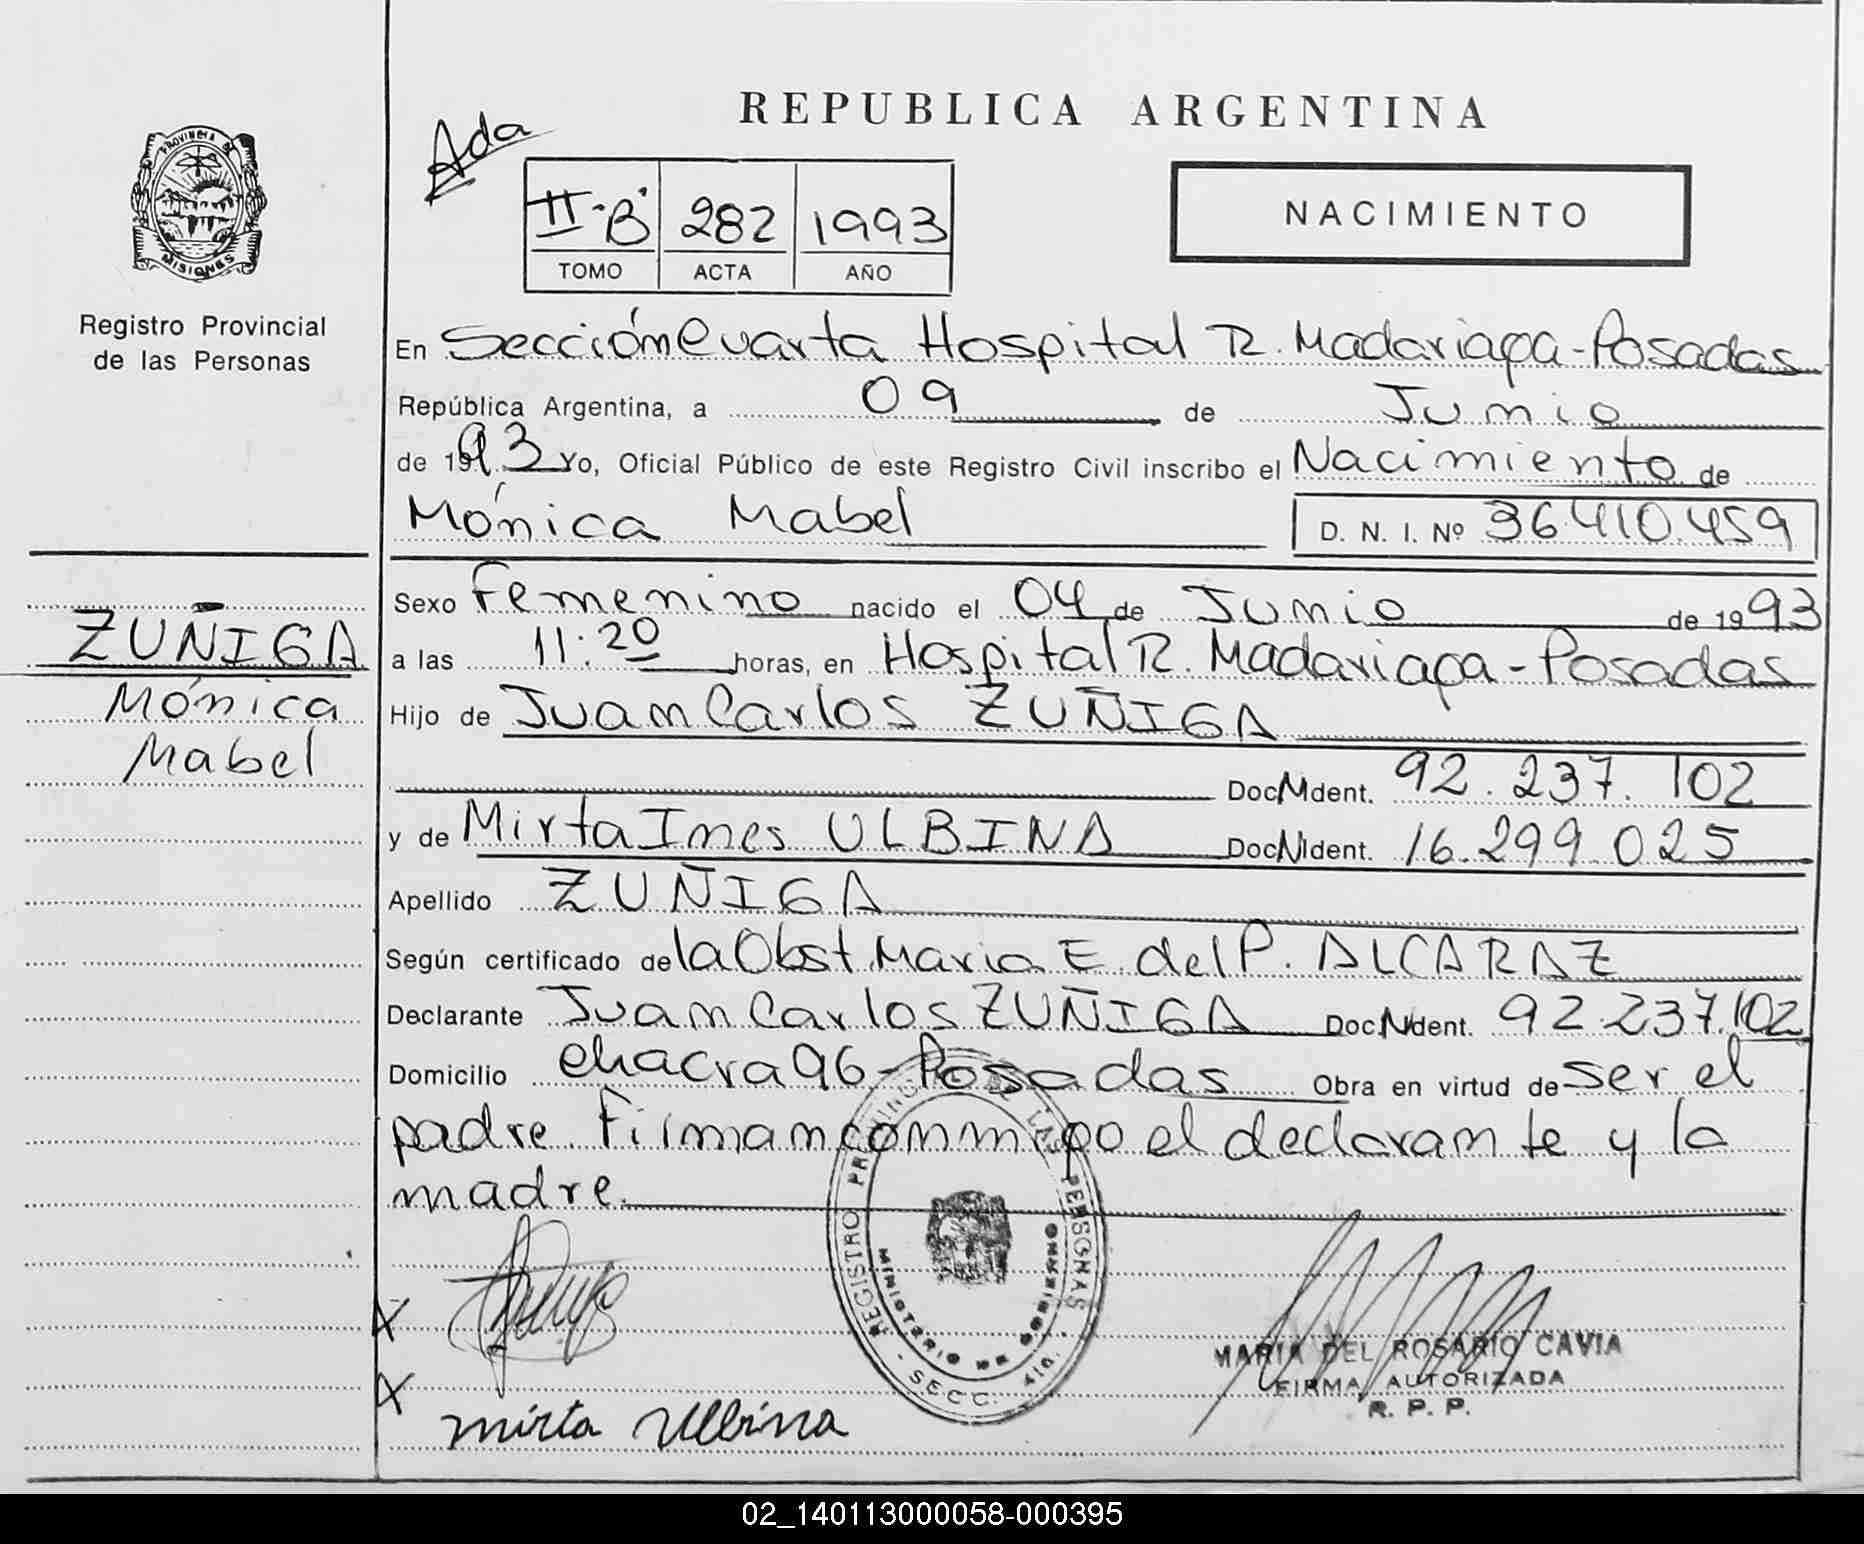 REPUBLICA ARGENTINA
Ada
PROVINCIA DE MISIONES
II-B 282 1993
TOMO ACTA AÑO
NACIMIENTO
Registro Provincial
de las Personas
En Sección Cuarta Hospital R. Madariaga-Posadas
República Argentina, a 09 de Junio
de 1993 Yo, Oficial Público de este Registro Civil inscribo el Nacimiento de
Mónica Mabel D. N. I. Nº 36.410.459
ZUÑIGA
Mónica
Mabel
Sexo Femenino nacido el 04 de Junio de 1993
a las 11:20 horas, en Hospital R. Madariaga-Posadas
Hijo de Juan Carlos ZUÑIGA
Doc. Ident. 92.237.102
y de Mirta Ines ULBINA Doc. Ident. 16.299.025
Apellido ZUÑIGA
Según certificado de la Obst. Maria E. del P. ALCARAZ
Declarante Juan Carlos ZUÑIGA Doc. Ident. 92.237.102
Domicilio chacra 96-Posadas Obra en virtud de ser el
padre. Firman conmigo el declarante y la
madre.
REGISTRO PROVINCIAL DE LAS PERSONAS - SECC. 4ta.
MINISTERIO DE GOBIERNO
MARIA DEL ROSARIO CAVIA
FIRMA AUTORIZADA
R. P. P.
X
X
Mirta Ulbina
02_140113000058-000395